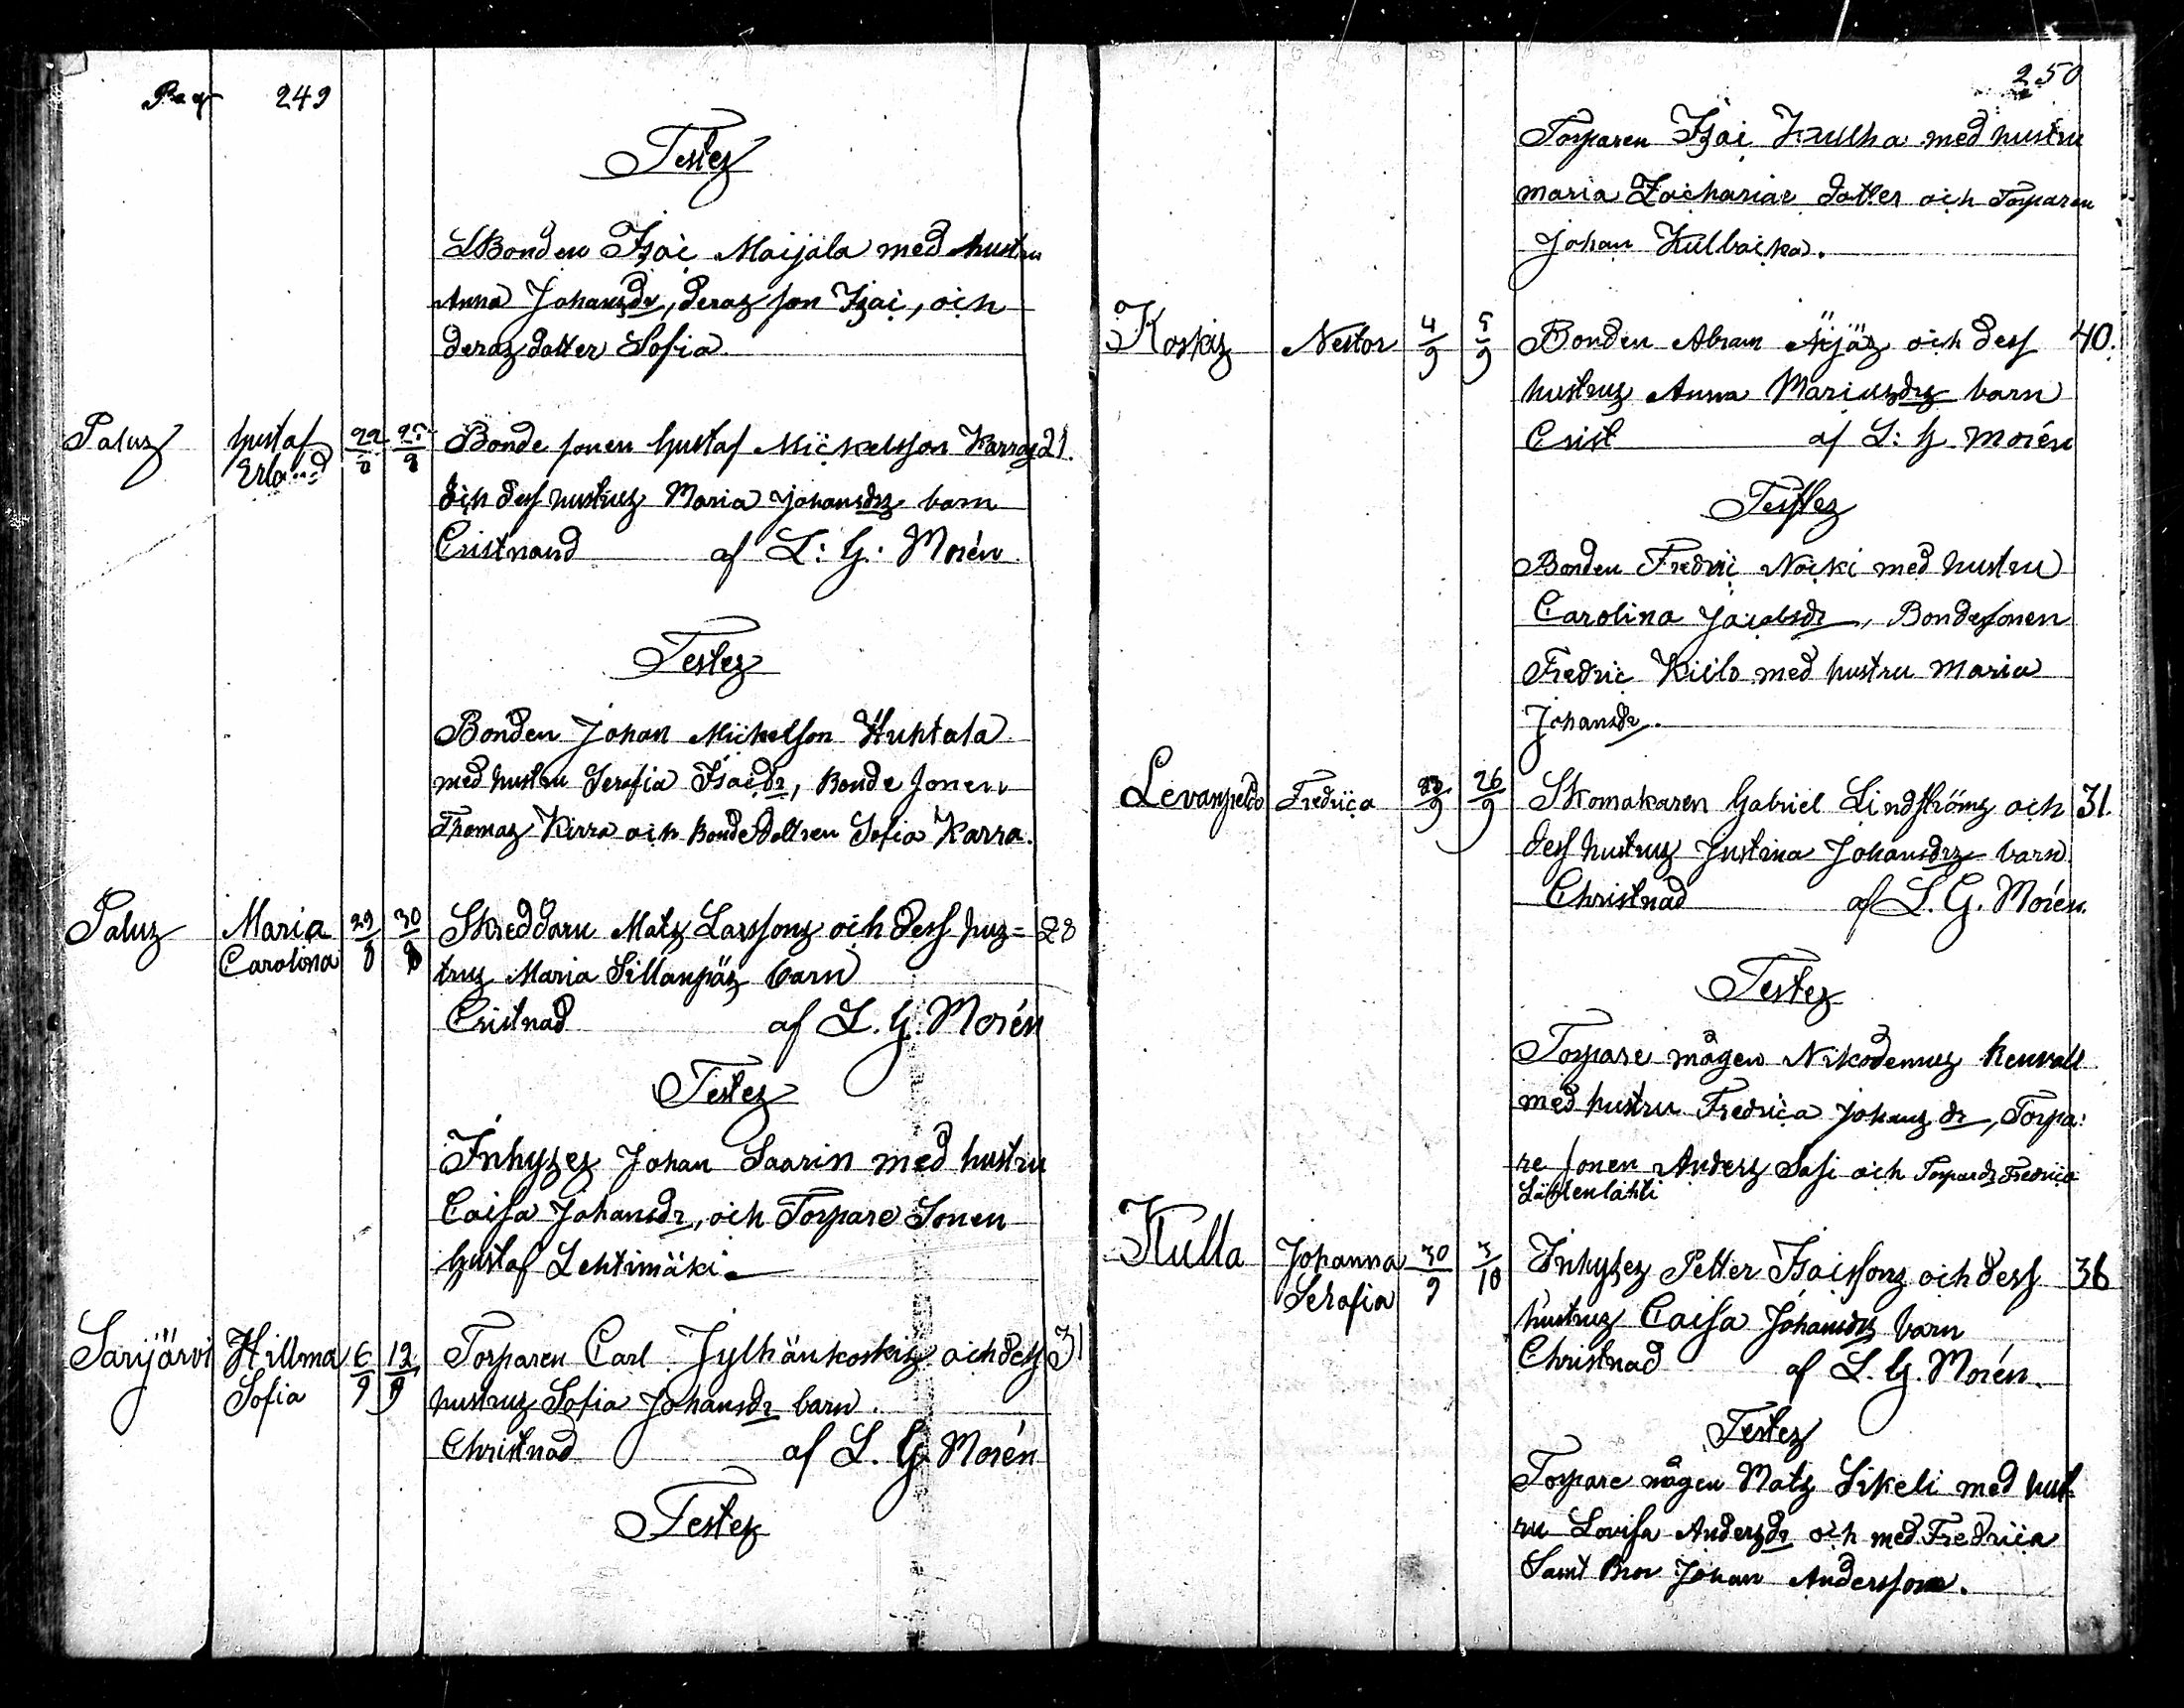 Pag 249
Testes
Bonden Isac Maijala med hustru
Anna Johansdr, deras son Isac, och
deras dotter Sofia.
Palus Gustaf 22/8 25/8 Bonde sonen Gustaf Mickelsson Karras 21.
Erland och dess hustrus Maria Johansdrs barn
Cristnand af L: G: Morén
Testes
Bonden Johan Mickelson Huhtala
med hustru Serafia Isacdr, Bonde sonen
Thomas Kirra och Bonde dottren Sofia Karra.
Palus Maria 29/8 30/8 Skreddarn Mats Larssons och dess hus= 28
Carolina trus Maria Sillanpäs barn
Cristnad af L. G. Morén
Testes
Inhyses Johan Saarin med hustru
Caisa Johansdr, och Torpare Sonen
Gustaf Lehtimäki
Sarijärvi Hillma 6/9 12/9 Torparen Carl Jylhänkoskis och dess 31
Sofia hustrus Sofia Johansdr barn.
Christnad af L. G. Morén
Testes
250
Torparen Isac med hustru
maria Zachariae dotter och Torparen
Johan
Koskis Nestor 4/9 5/9 Bonden Abram Äijäs och dess 40.
hustrus Anna barn
Crist af L: G Morén
Testes
Bonden Fredric Nocki med hustru
Carolina Jacobsdr, Bondesonen
Fredric Kiilo med hustru Maria
Johansdr.
Levanpeldo Fredrica 23/9 26/9 Skomakaren Gabriel Lindströms och 31.
dess hustrus Justina Johansdrs barn
Christnad af L. G. Morén.
Testes
Torpare mågen Nikodemus
med hustru Fredrica Johans dr, Torpa:
re sonen Anders Sasi och Torpardr Fredrica
Kulla Johanna 30/9 3/10 Inhyses Petter Isacssons och dess 36
Serafia hustrus Caisa Johansdrs barn
Christnad af L. G. Morén.
Testes
Torpare mågen Mats Sikeli med hust
ru Lovisa Andersdr och med Fredrica
Samt Bror Johan Andersson.